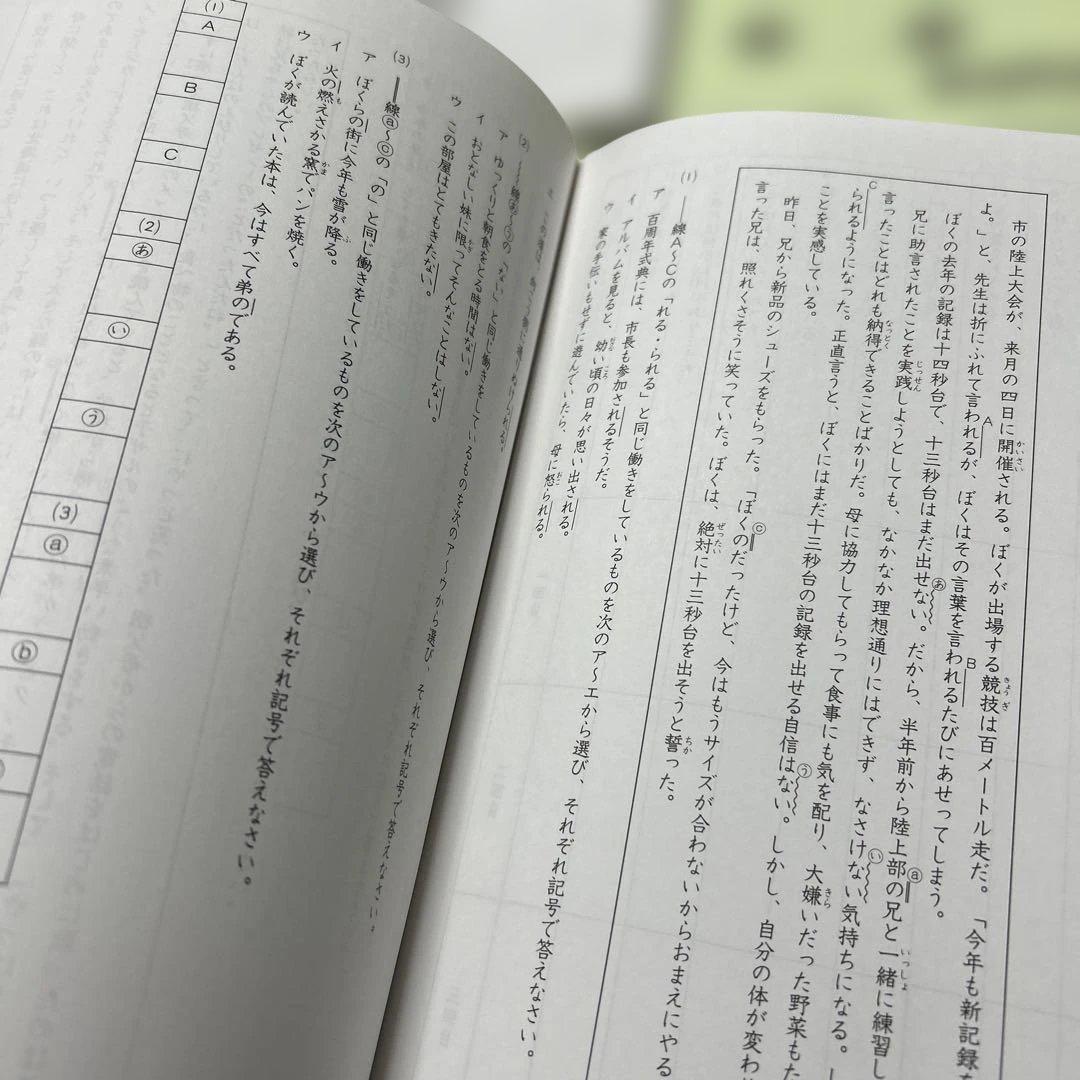 市の陸上大会が、来月の四日に開催される。ぼくが出場する競技は百メートル走だ。「今年も新記録を
よ。」と、先生は折にふれて言われるが、ぼくはその言葉を言われるたびにあせってしまう。
ぼくの去年の記録は十四秒台で、十三秒台はまだ出せない。だから、半年前から陸上部の兄と一緒に練習し
兄に助言されたことを実践しようとしても、なかなか理想通りにはできず、なさけない気持ちになる。
言ったことはどれも納得できることばかりだ。母に協力してもらって食事にも気を配り、大嫌いだった野菜もた
られるようになった。正直言うと、ぼくにはまだ十三秒台の記録を出せる自信はない。しかし、自分の体が変わ
ことを実感している。
昨日、兄から新品のシューズをもらった。「ぼくのだったけど、今はもうサイズが合わないからおまえにやる
言った兄は、照れくさそうに笑っていた。ぼくは、絶対に十三秒台を出そうと誓った。
(1) ――線A〜Cの「れる・られる」と同じ働きをしているものを次のア〜エから選び、それぞれ記号で答えなさい。
ア 百周年式典には、市長も参加されるそうだ。
イ アルバムを見ると、幼い頃の日々が思い出される。
ウ 家の手伝いもせずに遊んでいたら、母に怒られる。
(2) 〜〜線あ〜うの「ない」と同じ働きをしているものを次のア〜ウから選び、それぞれ記号で答えなさい。
ア ゆっくりと朝食をとる時間はない。
イ おとなしい妹に限ってそんなことはしない。
ウ この部屋はとてもきたない。
(3) ══線ⓐ〜ⓒの「の」と同じ働きをしているものを次のア〜ウから選び、それぞれ記号で答えなさい。
ア ぼくらの街に今年も雪が降る。
イ 火の燃えさかる窯でパンを焼く。
ウ ぼくが読んでいた本は、今はすべて弟のである。
(1) A B C (2) あ い う (3) ⓐ ⓑ